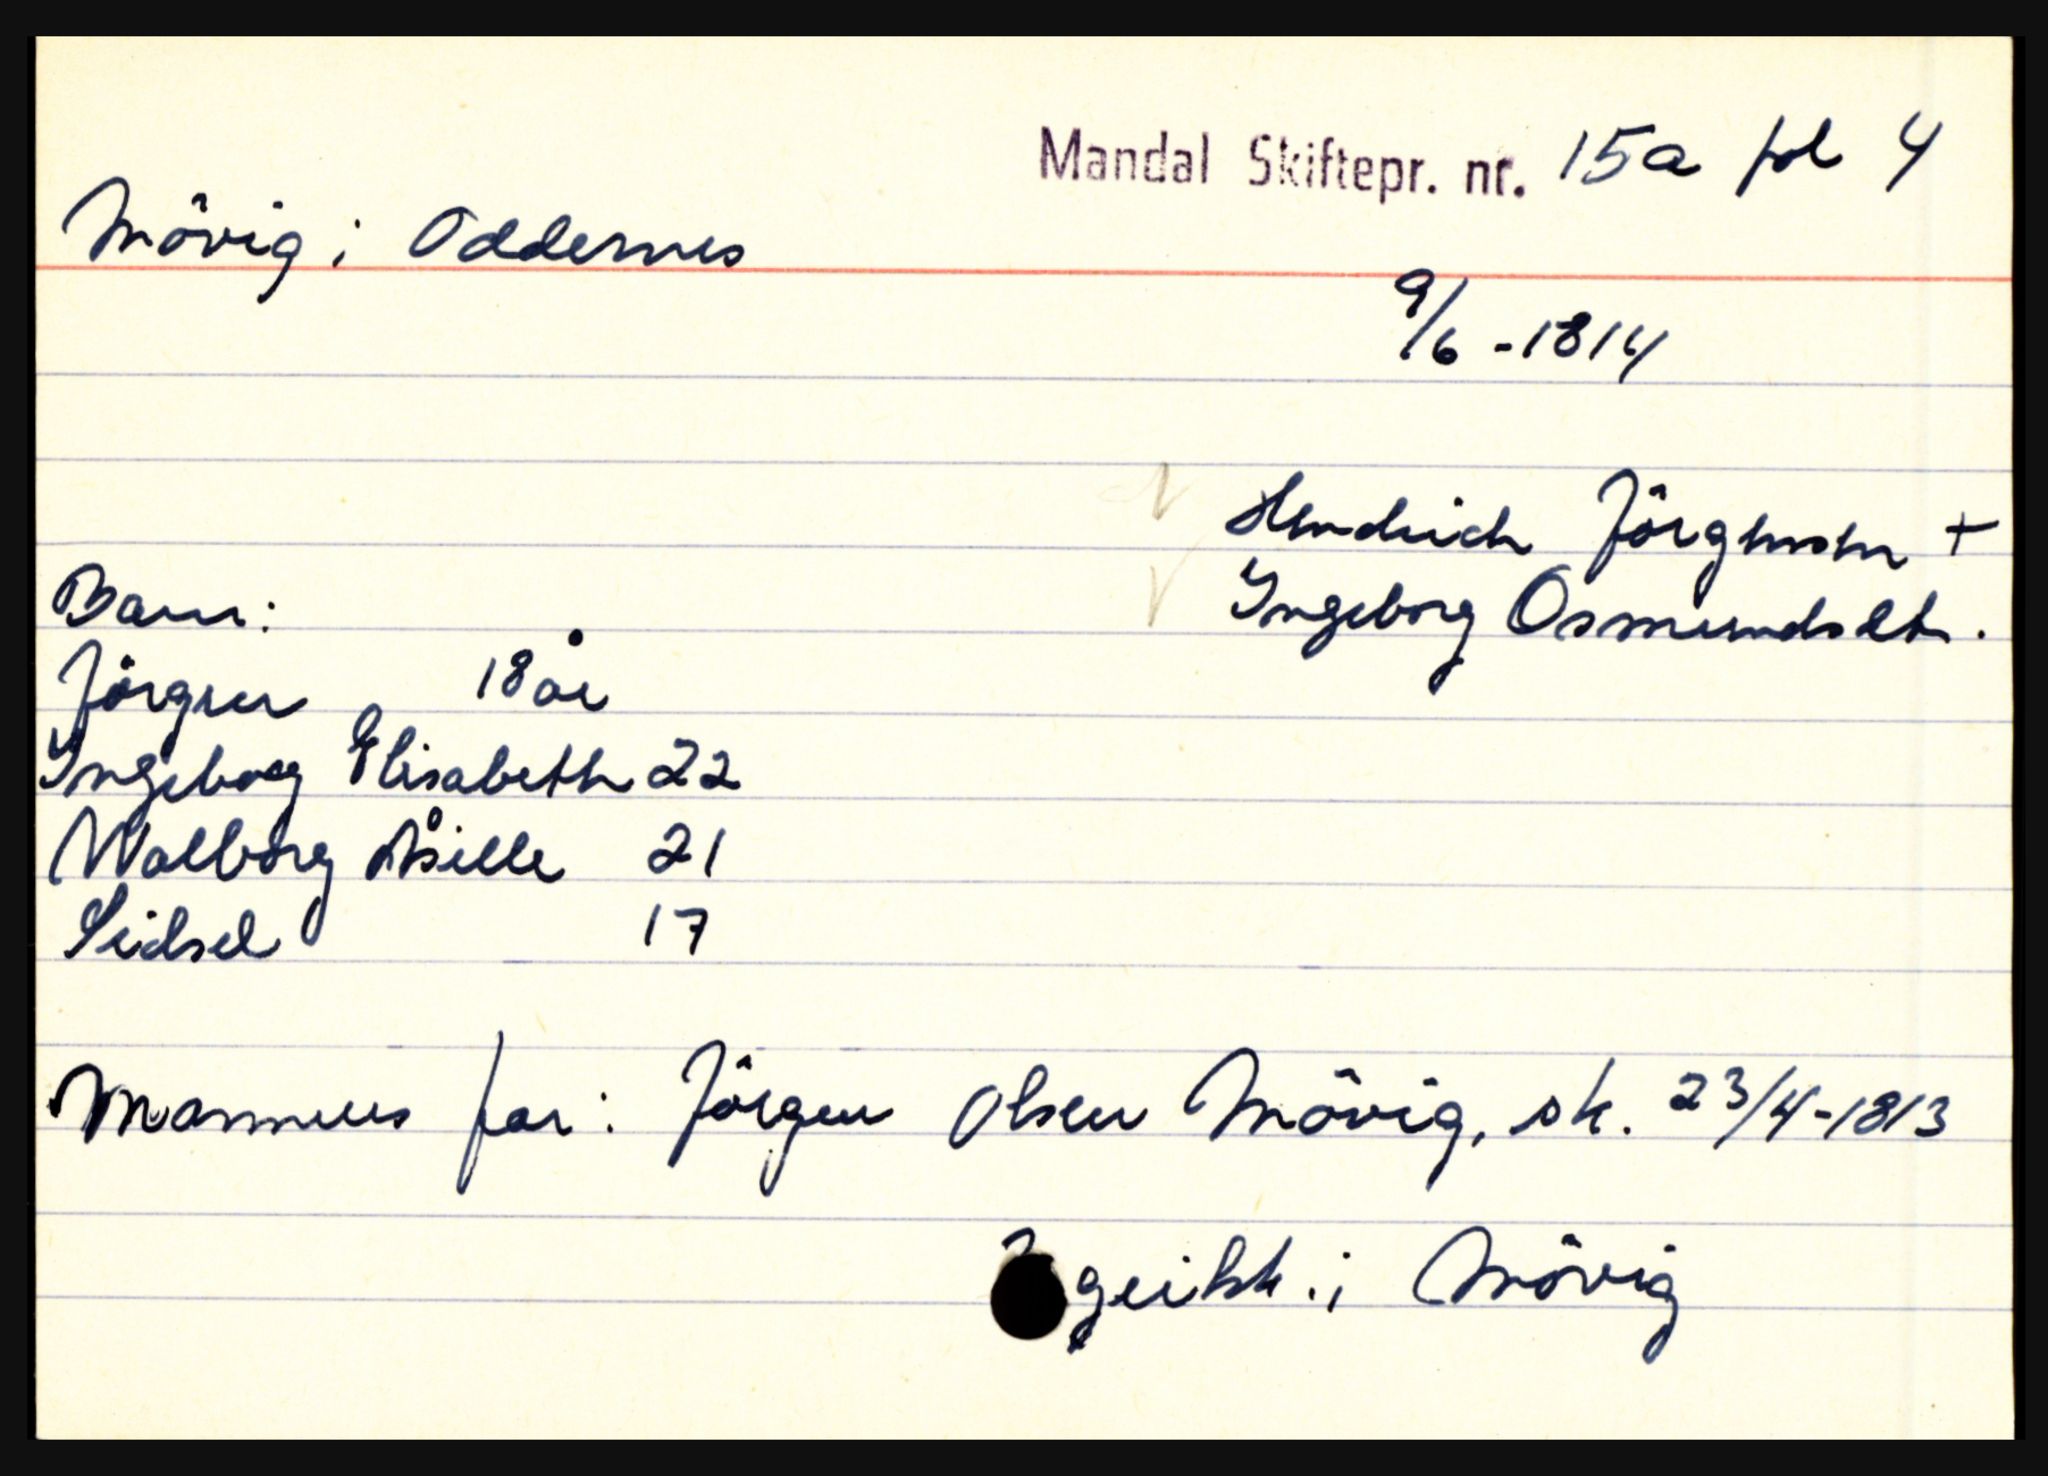 Mandal Skiftepr. nr. 15a fol 4
Mövig i Oddernes
9/6 - 1814
Hendrich Jörgensen +
Ingeborg Osmundsdt.
Barn:
Jörgen 18 år
Ingeborg Elisabeth 22
Walborg Åsille 21
Seidsel 17
Mannens far: Jörgen Olsen Mövig, sk. 23/4-1813
i Mövig